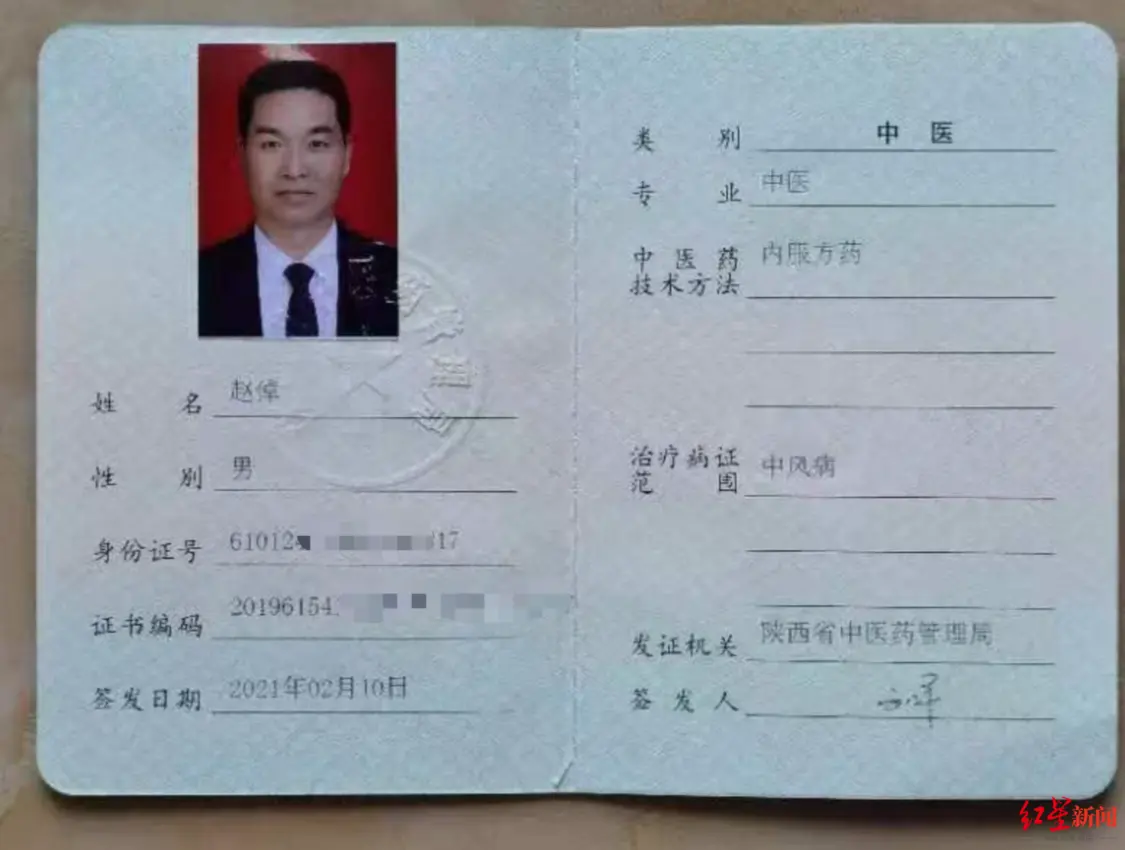 姓名 赵倬
性别 男
身份证号 610124 17
证书编码 201961541
签发日期 2021年02月10日
类别 中医
专业 中医
中医药
技术方法 内服方药
治疗病证
范围 中风病
发证机关 陕西省中医药管理局
签发人
红星新闻